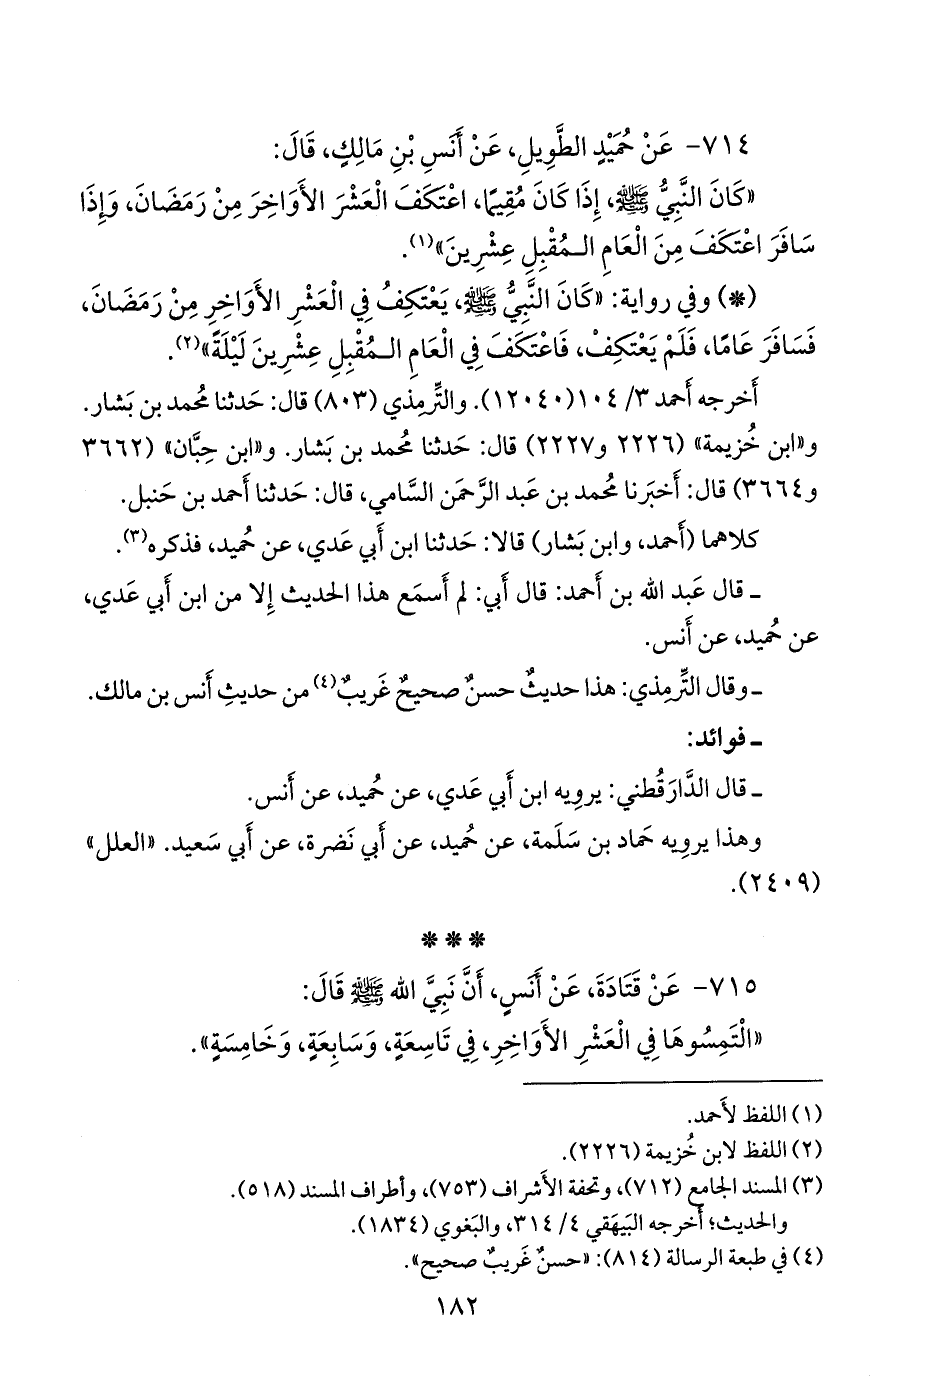 ٧١٤- عَنْ حُمَيْدٍ الطَّوِيلِ، عَنْ أَنَسِ بْنِ مَالِكٍ، قَالَ:
«كَانَ النَّبِيُّ ﷺ، إِذَا كَانَ مُقِيمًا، اعْتَكَفَ الْعَشْرَ الأَوَاخِرَ مِنْ رَمَضَانَ، وَإِذَا
سَافَرَ اعْتَكَفَ مِنَ الْعَامِ الـمُقْبِلِ عِشْرِينَ»(١).
(*) وفي رواية: «كَانَ النَّبِيُّ ﷺ، يَعْتَكِفُ فِي الْعَشْرِ الأَوَاخِرِ مِنْ رَمَضَانَ،
فَسَافَرَ عَامًا، فَلَمْ يَعْتَكِفْ، فَاعْتَكَفَ فِي الْعَامِ الـمُقْبِلِ عِشْرِينَ لَيْلَةً»(٢).
أَخرجه أحمد ٣/ ١٠٤(١٢٠٤٠). والتِّرمِذي (٨٠٣) قال: حَدثنا مُحمد بن بَشار.
و«ابن خُزيمة» (٢٢٢٦ و٢٢٢٧) قال: حَدثنا مُحمد بن بَشار. و«ابن حِبَّان» (٣٦٦٢
و٣٦٦٤) قال: أَخبَرنا مُحمد بن عَبد الرَّحمَن السَّامي، قال: حَدثنا أَحمد بن حَنبل.
كلاهما (أَحمد، وابن بَشار) قالا: حَدثنا ابن أَبي عَدي، عن حُميد، فذكره(٣).
ـ قال عَبد الله بن أَحمد: قال أَبي: لم أَسمَع هذا الحديث إِلا من ابن أَبي عَدي،
عن حُميد، عن أَنس.
ـ وقال التِّرمِذي: هذا حديثٌ حسنٌ صحيحٌ غَريبٌ(٤) من حديثِ أَنس بن مالك.
ـ فوائد:
ـ قال الدَّارَقُطني: يروِيه ابن أَبي عَدي، عن حُميد، عن أَنس.
وهذا يروِيه حَماد بن سَلَمة، عن حُميد، عن أَبي نَضرة، عن أَبي سَعيد. «العلل»
(٢٤٠٩).
***
٧١٥- عَنْ قَتَادَةَ، عَنْ أَنَسٍ، أَنَّ نَبِيَّ الله ﷺ قَالَ:
«الْتَمِسُوهَا فِي الْعَشْرِ الأَوَاخِرِ، فِي تَاسِعَةٍ، وَسَابِعَةٍ، وَخَامِسَةٍ».
(١) اللفظ لأَحمد.
(٢) اللفظ لابن خُزيمة (٢٢٢٦).
(٣) المسند الجامع (٧١٢)، وتحفة الأَشراف (٧٥٣)، وأطراف المسند (٥١٨).
والحديث؛ أخرجه البَيهَقي ٤/ ٣١٤، والبَغوي (١٨٣٤).
(٤) في طبعة الرسالة (٨١٤): «حسنٌ غَريبٌ صحيح».
١٨٢